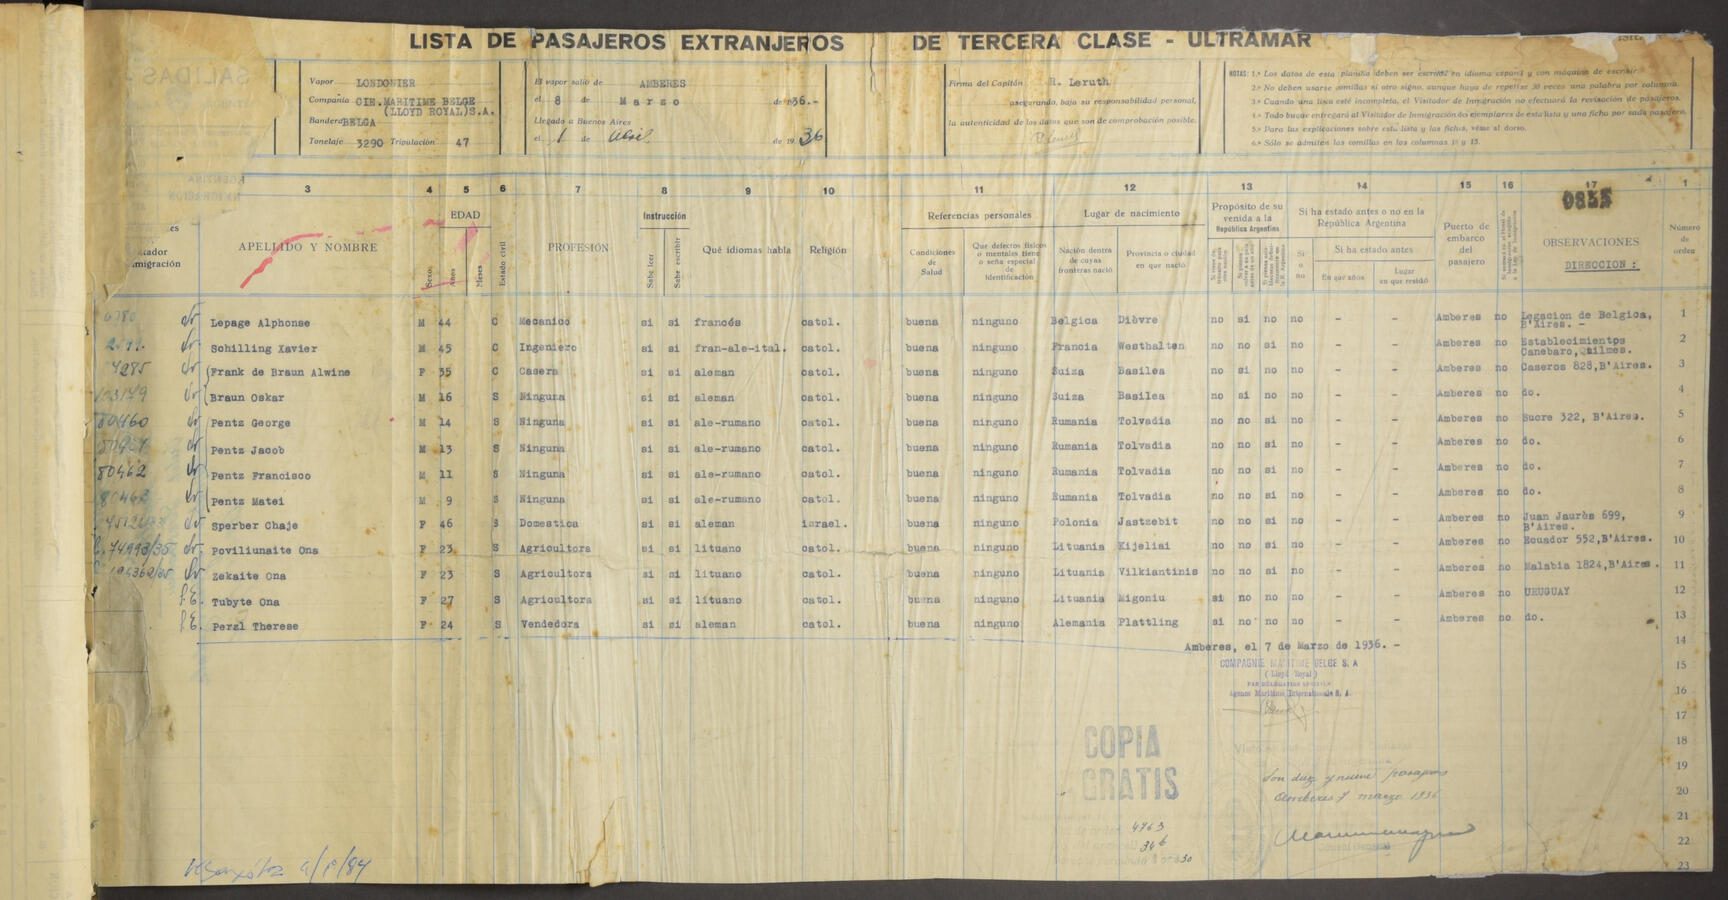 LISTA DE PASAJEROS EXTRANJEROS DE TERCERA CLASE - ULTRAMAR
Vapor LONDONIER
Compañía CIE.MARITIME BELGE
(LLOYD ROYAL)S.A.
Bandera BELGA
Tonelaje 3290 Tripulación 47
El vapor salió de AMBERES
el 8 de Marzo de 1936.-
Llegado a Buenos Aires
el 1 de Abril de 1936
Firma del Capitán R. Leruth
asegurando, bajo su responsabilidad personal,
la autenticidad de los datos que son de comprobación posible.
NOTAS: 1.ª Los datos de esta planilla deben ser escritos en idioma español y con máquina de escribir.
2.ª No deben usarse comillas ni otro signo, aunque haya de repetirse 30 veces una palabra por columna.
3.ª Cuando una lista esté incompleta, el Visitador de Inmigración no efectuará la revisación de pasajeros.
4.ª Todo buque entregará al Visitador de Inmigración dos ejemplares de esta lista y una ficha por cada pasajero.
5.ª Para las explicaciones sobre esta lista y las fichas, véase al dorso.
6.ª Sólo se admiten las comillas en las columnas 1ª y 15.
3 4 5 6 7 8 9 10 11 12 13 14 15 16 17 1
0835
APELLIDO Y NOMBRE
Sexo
EDAD
Años
Meses
Estado civil
PROFESIÓN
Instrucción
Sabe leer
Sabe escribir
Qué idiomas habla
Religión
Referencias personales
Condiciones de Salud
Que defectos físicos o mentales tiene o seña especial de identificación
Lugar de nacimiento
Nación dentra de cuyas fronteras nació
Provincia o ciudad en que nació
Propósito de su venida a la República Argentina
Si ha estado antes o no en la República Argentina
Si o no
Si ha estado antes
En que años
Lugar en que residió
Puerto de embarco del pasajero
OBSERVACIONES
DIRECCION :
Número de orden
Lepage Alphonse M 44 C Mecanico si si francés catol. buena ninguno Belgica Dièvre no si no no - - Amberes no Legacion de Belgica, B'Aires. - 1
Schilling Xavier M 45 C Ingeniero si si fran-ale-ital. catol. buena ninguno Francia Westhalten no no si no - - Amberes no Establecimientos Canebaro, Quilmes. 2
4285 Frank de Braun Alwine F 35 C Casera si si aleman catol. buena ninguno Suiza Basilea no si no no - - Amberes no Caseros 828,B'Aires. 3
Braun Oskar M 16 S Ninguna si si aleman catol. buena ninguno Suiza Basilea no si no no - - Amberes no do. 4
80460 Pentz George M 14 S Ninguna si si ale-rumano catol. buena ninguno Rumania Tolvadia no no si no - - Amberes no Sucre 322, B'Aires. 5
Pentz Jacob M 13 S Ninguna si si ale-rumano catol. buena ninguno Rumania Tolvadia no no si no - - Amberes no do. 6
80462 Pentz Francisco M 11 S Ninguna si si ale-rumano catol. buena ninguno Rumania Tolvadia no no si no - - Amberes no do. 7
80463 Pentz Matei M 9 S Ninguna si si ale-rumano catol. buena ninguno Rumania Tolvadia no no si no - - Amberes no do. 8
Sperber Chaje F 46 S Domestica si si aleman israel. buena ninguno Polonia Jastzebit no no si no - - Amberes no Juan Jaurès 699, B'Aires. 9
Poviliunaite Ona F 23 S Agricultora si si lituano catol. buena ninguno Lituania Kijeliai no no si no - - Amberes no Ecuador 552,B'Aires. 10
Zekaite Ona F 23 S Agricultora si si lituano catol. buena ninguno Lituania Vilkiantinis no no si no - - Amberes no Malabia 1824,B'Aires. 11
Tubyte Ona F 27 S Agricultora si si lituano catol. buena ninguno Lituania Migoniu si no no no - - Amberes no URUGUAY 12
Perzl Therese F 24 S Vendedora si si aleman catol. buena ninguno Alemania Plattling si no no no - - Amberes no do. 13
Amberes, el 7 de Marzo de 1936. - 14
COMPAGNIE MARITIME BELGE S. A 15
(Lloyd Royal)
PAR DELEGATION SPECIALE
Agence Maritime Internationale S. A. 16
17
18
COPIA
GRATIS
Son diez y nueve pasajeros 19
Amberes 7 marzo 1936 20
21
4763
346 22
Consul General
23